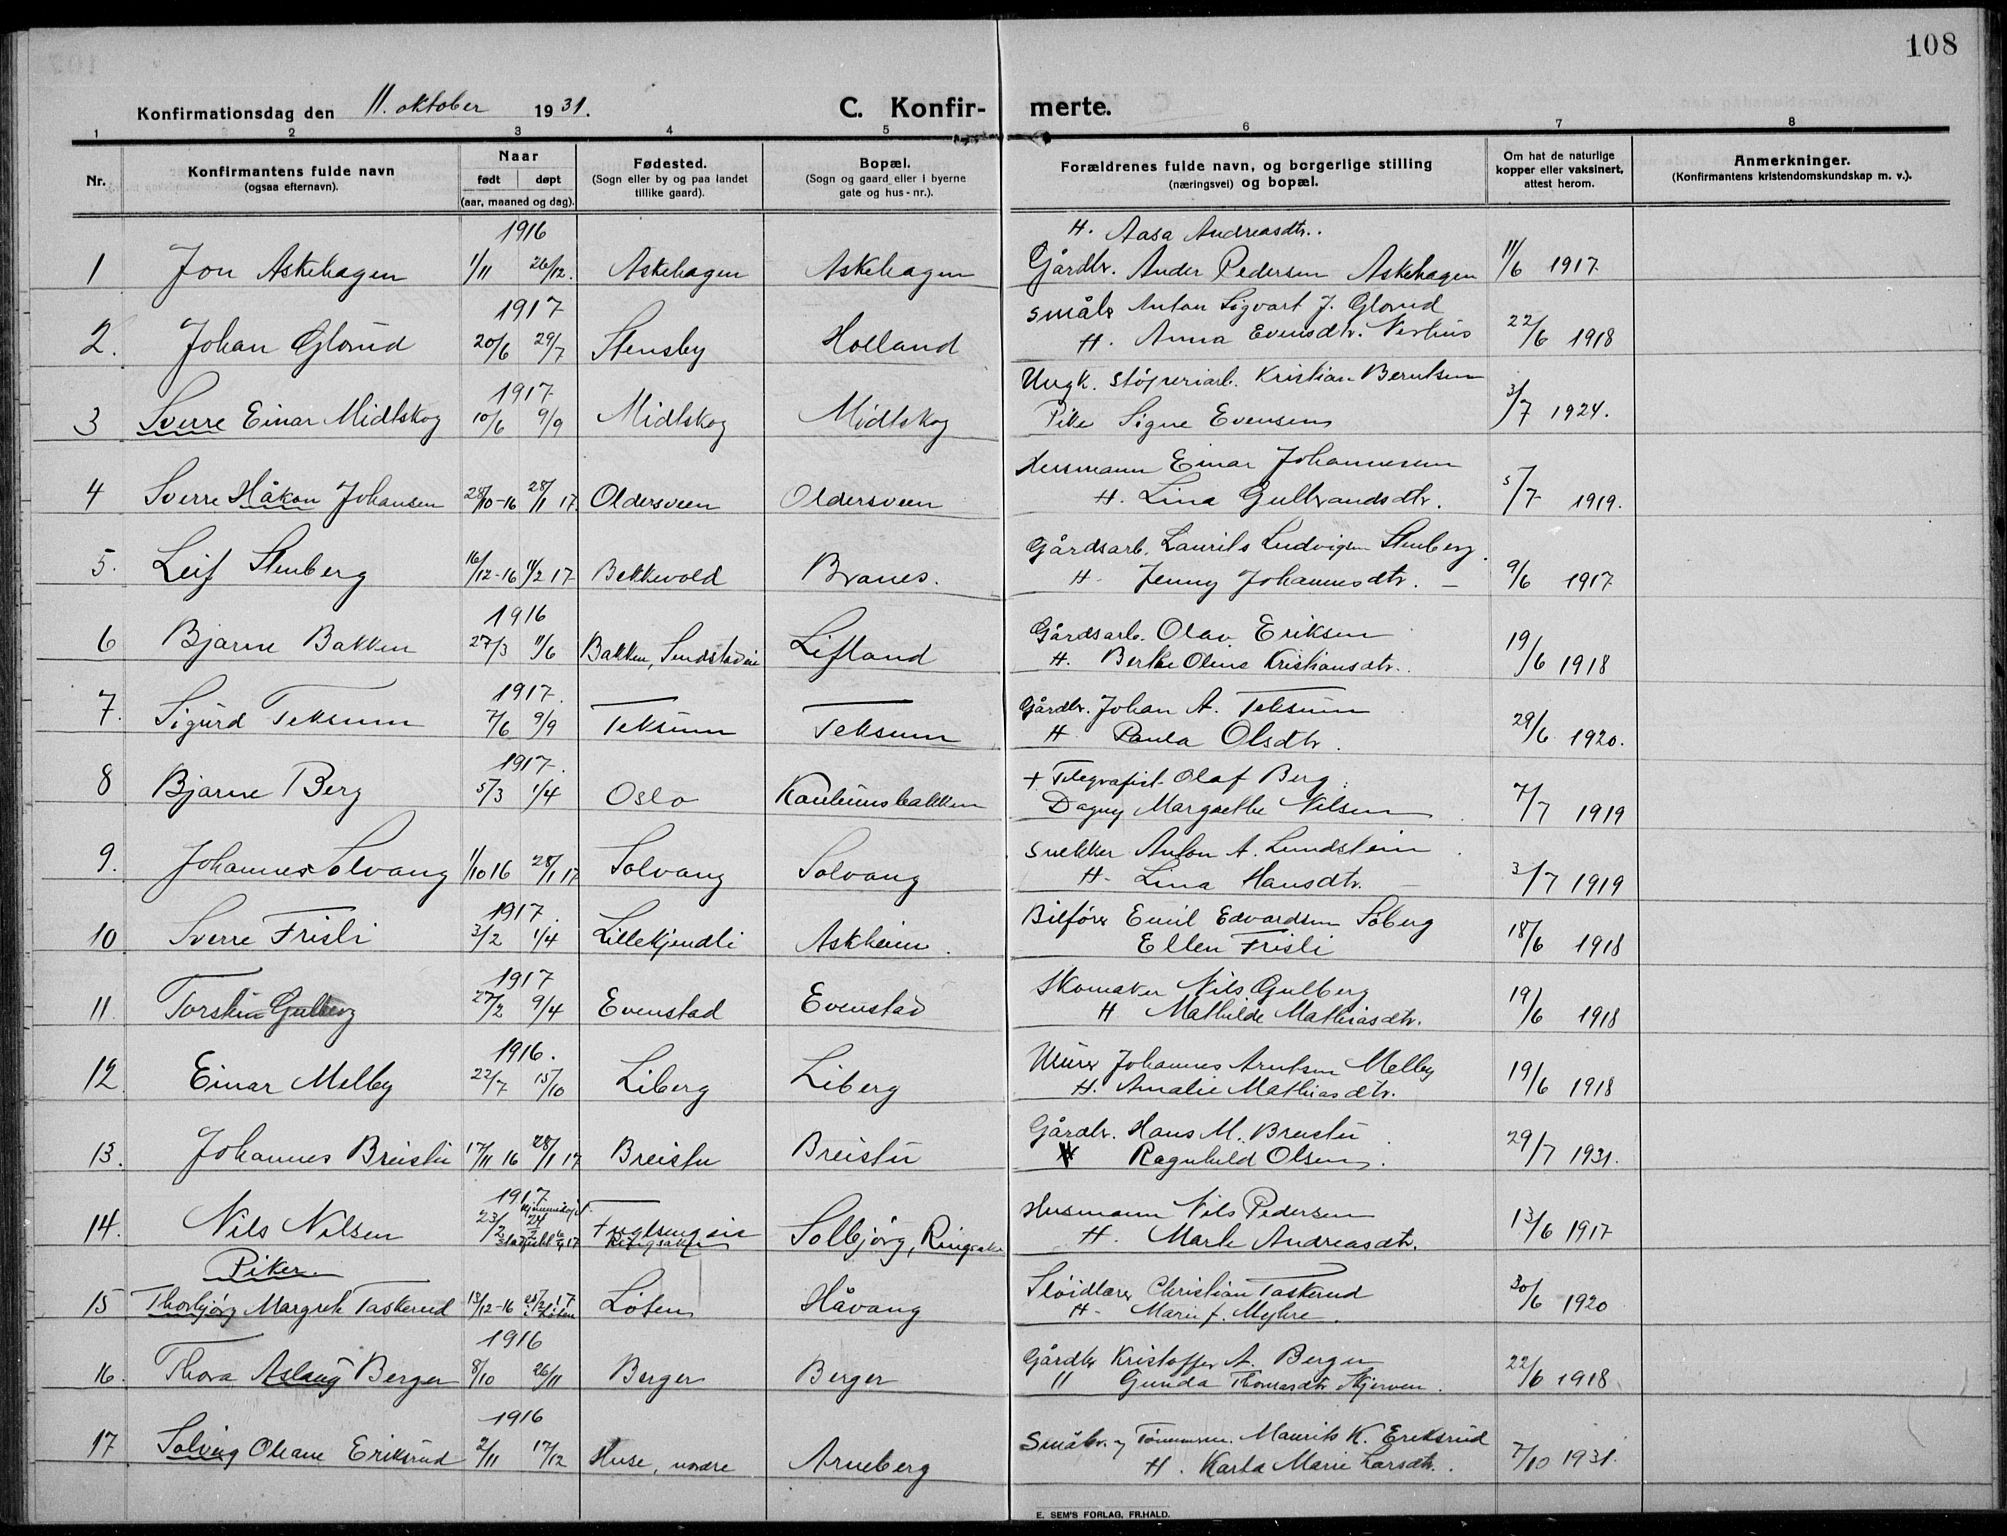 108
Konfirmationsdag den 11. oktober 1931.
C. Konfir- merte.
1 2 3 4 5 6 7 8
Nr.
Konfirmantens fulde navn
(ogsaa efternavn).
Naar
født døpt
(aar, maaned og dag).
Fødested.
(Sogn eller by og paa landet
tillike gaard).
Bopæl.
(Sogn og gaard eller i byerne
gate og hus-nr.).
Forældrenes fulde navn, og borgerlige stilling
(næringsvei) og bopæl.
Om hat de naturlige
kopper eller vaksinert,
attest herom.
Anmerkninger.
(Konfirmantens kristendomskundskap m. v.).
1916 H. Aasa Andreasdtr.
1 Jon Askehagen 1/11 26/12. Askehagen Askehagen Gårdbr. Ander Pedersen Askehagen 11/6 1917
1917 småbr Anton Sigvart J. Glorud
2. Johan Glorud 20/6 29/7 Stensby Holland H. Anna Evensdtr. 22/6 1918
1917 Ungk. støperiarb. Kristian Berntsen
3 Sverre Einar Midtskog 10/6 9/9 Midtskog Midtskog Pike Signe Evensen 3/7 1924.
Husmann Einar Johannesen
4 Sverre Håkon Johansen 28/10-16 28/1 17. Oldersveen Oldersveen H. Lina Gulbrandsdtr. 5/7 1919.
Gårdsarb. Laurits Ludvigsen Stenberg.
5. Leif Stenberg 16/12-16 11/2 17 Bekkevold Branes. H. Jenny Johannesdtr. — 9/6 1917
1916 Gårdsarb. Olav Eriksen
6 Bjarne Bakken 27/3 11/6 Bakken, Lifland H. Berthe Oline Kristiansdtr. 19/6 1918
1917. Gårdbr. Johan A. Teksum
7. Sigurd Teksum 7/6 9/9 Teksum Teksum H. Paula Olsdtr. 29/6 1920.
1917. + Telegrafist Olaf Berg
8 Bjarne Berg 5/3 1/4 Oslo Dagny Margrethe Nilsen 7/7 1919
snekker Anton A. Lundstein
9. Johannes Solvang 1/10 16 28/1 17 Solvang Solvang H. Lina Hansdtr. 3/7 1919
1917 Bilfører Emil Edvardsen Soberg
10 Sverre Frisli 3/2 1/4 Lillekjendli Askheim. Ellen Frisli 18/6 1918
1917 Skomaker Nils Gulberg
11. Torstein Gulberg 27/2 9/4 Evenstad Evenstad H Mathilde Mathiasdtr. 19/6 1918
1916. Murer Johannes Arntsen Melby
12. Einar Melby 22/7 15/10 Liberg Liberg H. Amalie Mathiasdtr. 19/6 1918
Gårdbr. Hans M. Breistu
13. Johannes Breistu 17/11 16 28/1 17 Breistu Breistu H Ragnhild Olsen. 29/7 1931.
1917 Husmann Nils Pedersen
14. Nils Nilsen 23/2 Ringsaker Solbjørg, Ringsaker H. Marte Andreasdtr. 13/6 1917
Piker
Sløidlærer Christian Taskerud
15 Thorbjørg Margrethe Taskerud 13/12-16 17 i Løten Løten Håvang H. Marie f. Myhre. 30/6 1920
1916 Gårdbr Kristoffer A. Berger
16. Thora Aslaug Berger 8/10 26/11 Berger Berger " Gunda Thomasdtr. Skjerven. 22/6 1918
1916 Småbr. og Tømmerm. Maurits K. Eriksrud
17 Solveig Oleane Eriksrud 2/11 17/12 Huse, nordre Arneberg H. Karla Marie Larsdtr. 7/10 1931.
E. SEM'S FORLAG, FR.HALD.